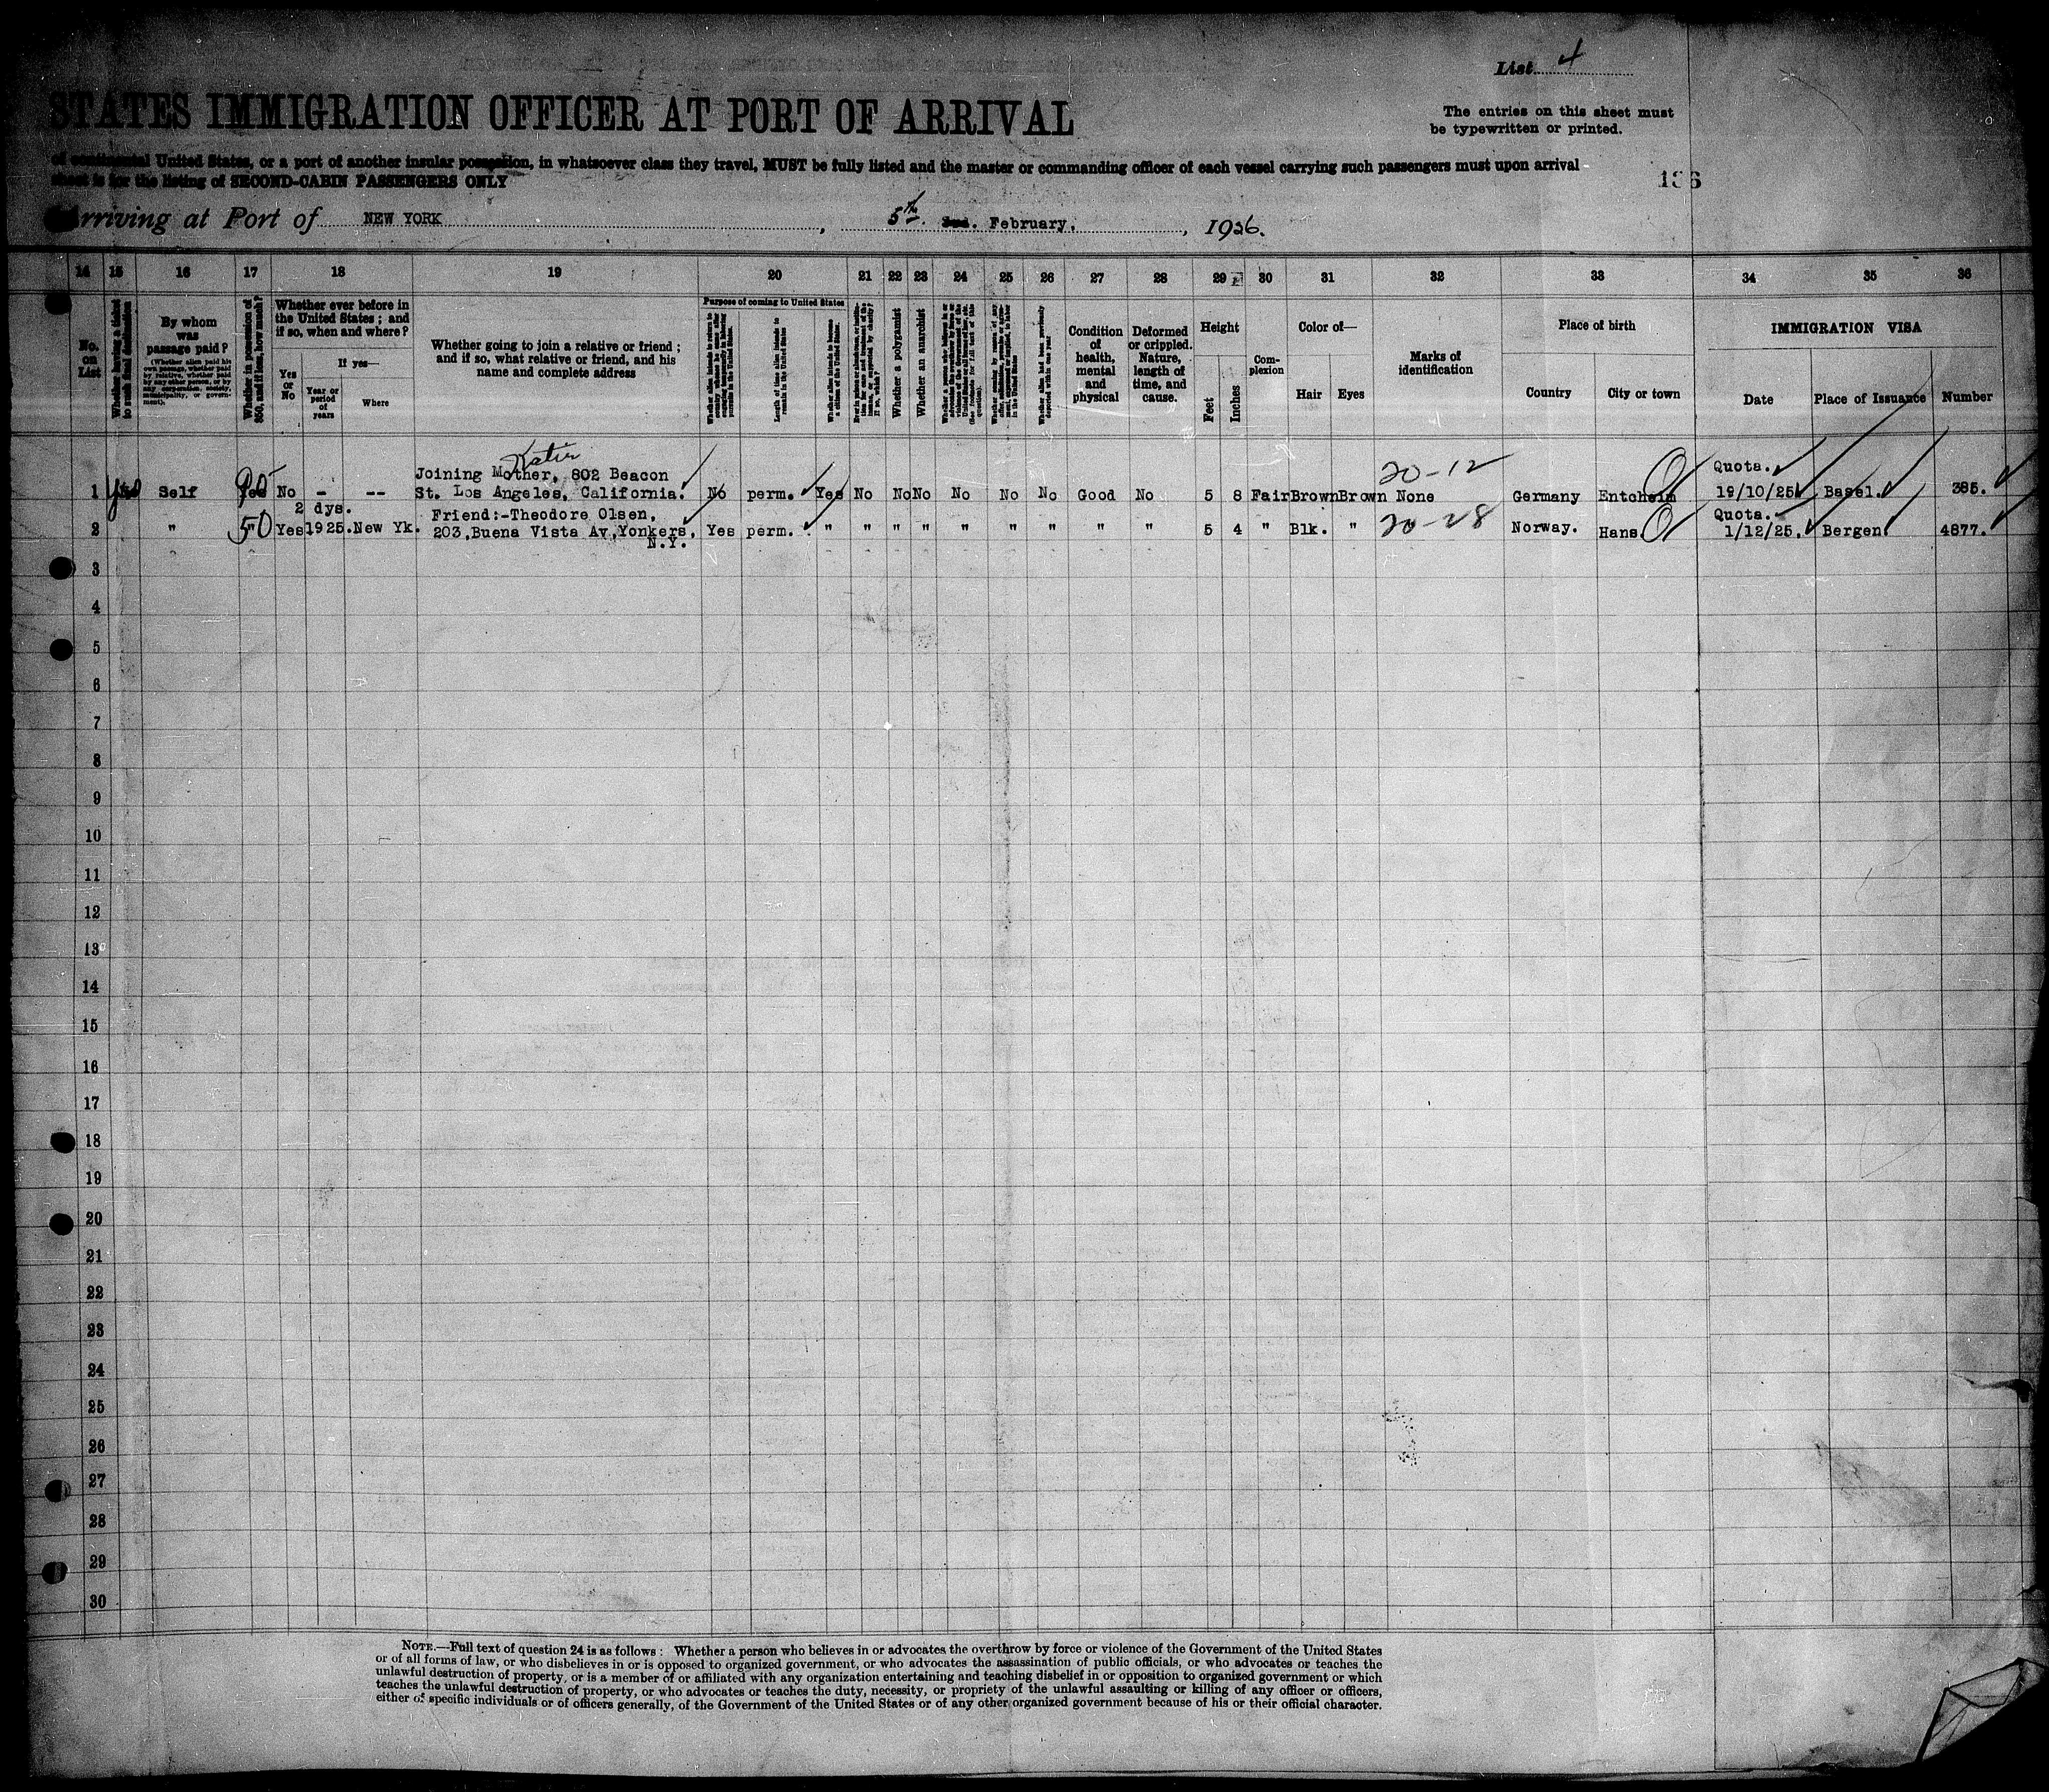 List 4
STATES IMMIGRATION OFFICER AT PORT OF ARRIVAL
The entries on this sheet must
be typewritten or printed.
of continental United States, or a port of another insular possession, in whatsoever class they travel, MUST be fully listed and the master or commanding officer of each vessel carrying such passengers must upon arrival
sheet is for the listing of SECOND-CABIN PASSENGERS ONLY
136
Arriving at Port of NEW YORK, 5th. February, 1926.
14 15 16 17 18 19 20 21 22 23 24 25 26 27 28 29 30 31 32 33 34 35 36
No. on List
Whether having a ticket to such final destination
By whom was passage paid?
(Whether alien paid his own passage, whether paid by relative, whether paid by any other person, or by any corporation, society, municipality, or government).
Whether in possession of $50, and if less, how much?
Whether ever before in the United States; and if so, when and where?
Yes or No
If yes—
Year or period of years
Where
Whether going to join a relative or friend; and if so, what relative or friend, and his name and complete address
Purpose of coming to United States
Length of time alien intends to remain in the United States
Whether alien intends to become a citizen of the United States.
Whether a polygamist
Whether an anarchist
Condition of health, mental and physical
Deformed or crippled. Nature, length of time, and cause.
Height
Feet
Inches
Complexion
Color of—
Hair
Eyes
Marks of identification
Place of birth
Country
City or town
IMMIGRATION VISA
Date
Place of Issuance
Number
Katie
Joining Mother, 802 Beacon 20-12 Quota.
1 Yes Self Yes No - -- St. Los Angeles, California. No perm. Yes No No No No No No Good No 5 8 Fair Brown Brown None Germany Entcheim 19/10/25 Basel. 385.
2 dys. Friend:-Theodore Olsen, Quota.
2 " 50 Yes 1925. New Yk. 203, Buena Vista Av, Yonkers, Yes perm. " " " " " " " " " 5 4 " Blk. " 20-28 Norway. Hans. 1/12/25. Bergen. 4877.
N.Y.
3
4
5
6
7
8
9
10
11
12
13
14
15
16
17
18
19
20
21
22
23
24
25
26
27
28
29
30
NOTE.—Full text of question 24 is as follows: Whether a person who believes in or advocates the overthrow by force or violence of the Government of the United States
or of all forms of law, or who disbelieves in or is opposed to organized government, or who advocates the assassination of public officials, or who advocates or teaches the
unlawful destruction of property, or is a member of or affiliated with any organization entertaining and teaching disbelief in or opposition to organized government or which
teaches the unlawful destruction of property, or who advocates or teaches the duty, necessity, or propriety of the unlawful assaulting or killing of any officer or officers,
either of specific individuals or of officers generally, of the Government of the United States or of any other organized government because of his or their official character.